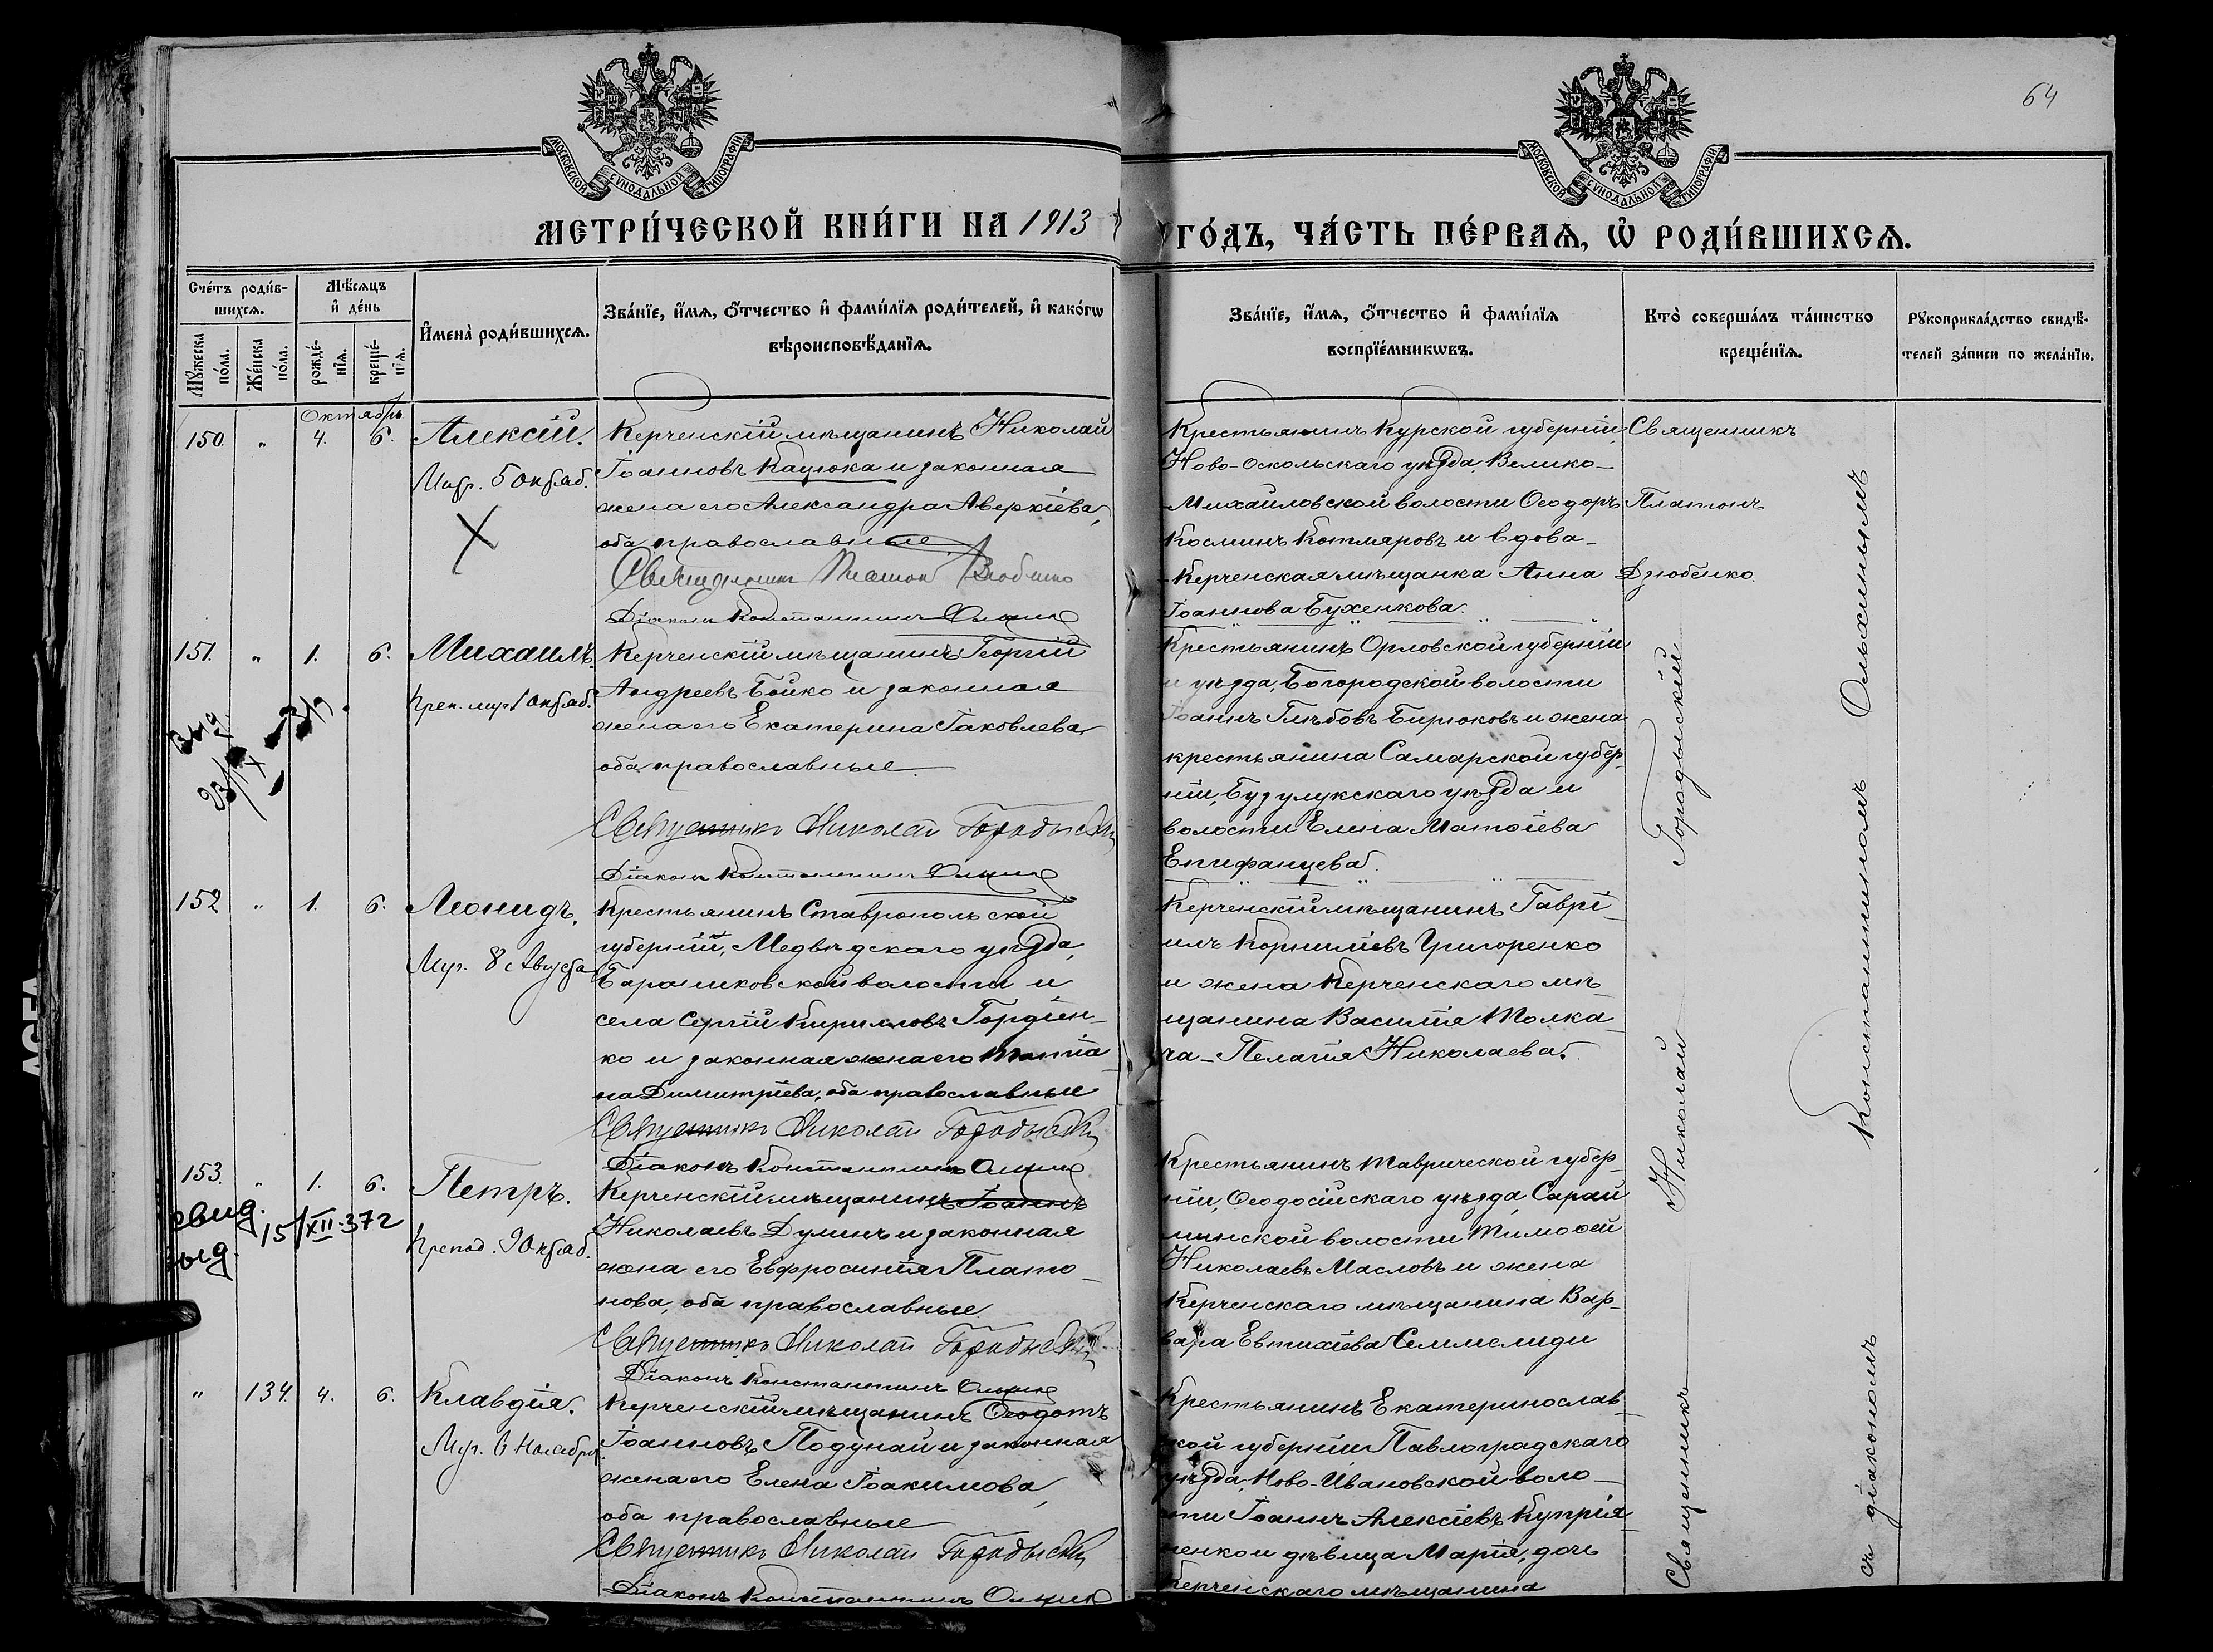 64
МОСКОВСКОЙ СѴНОДАЛЬНОЙ ТИПОГРАФІИ
МОСКОВСКОЙ СѴНОДАЛЬНОЙ ТИПОГРАФІИ
МЕТРИ́ЧЕСКОЙ КНИ́ГИ НА 1913
ГО́ДЪ, ЧА́СТЬ ПЕ́РВАѦ, Ѡ҆ РОДИ́ВШИХСѦ.
Сче́тъ роди́в-
шихсѧ.
Мꙋ́жеска по́ла.
Же́нска по́ла.
Мѣ́сѧцъ
и҆ де́нь
рожде́-нїѧ.
креще́-нїѧ.
И҆мена̀ роди́вшихсѧ.
Зва́нїе, и҆́мѧ, ѻ҆́тчество и҆ фами́лїѧ роди́телей, и҆ како́гѡ
вѣроисповѣ́данїѧ.
Зва́нїе, и҆́мѧ, ѻ҆́тчество и҆ фами́лїѧ
воспрїе́мникѡвъ.
Кто̀ соверша́лъ та́инство
креще́нїѧ.
Рꙋкоприкла́дство свидѣ́-
телей за́писи по жела́нїю.
Октябрь
150. " 4. 6. Алексій.
Митр. 5 Октяб.
Керченскій мѣщанинъ Николай
Іоанновъ Кацюка и законная
жена его Александра Аверкіева,
оба православные
Священникъ Платон Дзюбенко
Діаконъ Константинъ
Крестьянинъ Курской губерніи,
Ново-Оскольскаго уѣзда, Велико-
Михайловской волости Ѳеодоръ
Косминъ Котляровъ и вдова
Керченская мѣщанка Анна
Іоаннова Бухенкова.
Священникъ
Платонъ
Дзюбенко.
151. " 1. 6. Михаилъ
Преп. мур. 1 Октяб.
Керченскій мѣщанинъ Георгій
Андреевъ Бойко и законная
жена его Екатерина Іаковлева
оба православные
Священникъ Николай Городыскій
Діаконъ Константинъ
Крестьянинъ Орловской губерніи
и уѣзда, Богородской волости
Іоаннъ Глѣбовъ Бирюковъ и жена
крестьянина Самарской губер-
ніи, Бузулукскаго уѣзда и
волости Елена Матѳіева
Епифанцева.
152 " 1. 6. Леонидъ.
Муч. 8 Августа
Крестьянинъ Ставропольской
губерніи, Медвѣдскаго уѣзда,
Бараниковской волости и
села Сергій Кирилловъ Гордіен-
ко и законная жена его Татіа-
на Димитріева, оба православные
Священникъ Николай Городыскій
Діаконъ Константинъ
Керченскій мѣщанинъ Гаврі-
илъ Корниліевъ Григоренко
и жена Керченскаго мѣ-
щанина Василія Толка-
ча - Пелагія Николаева.
153. " 1. 6. Петръ.
свид.
выд. 15/XII-37г
Препод. 9 Октяб.
Керченскій мѣщанинъ Іоаннъ
Николаевъ Дулинъ и законная
жена его Евфросинія Плато-
нова, оба православные.
Священникъ Николай Городыскій
Діаконъ Константинъ
Крестьянинъ Таврической губер-
ніи, Ѳеодосійскаго уѣзда, Сарай-
минской волости Тимоѳей
Николаевъ Масловъ и жена
Керченскаго мѣщанина Вар-
вара Евтихіева
" 134. 4. 6. Клавдія.
Муч. 6 Ноября
Керченскій мѣщанинъ Ѳеодотъ
Іоанновъ Подунай и законная
жена его Елена Іоакимова,
оба православные
Священникъ Николай Городыскій
Діаконъ Константинъ
Крестьянинъ Екатеринослав-
ской губерніи Павлоградскаго
уѣзда, Ново-Ивановской воло-
сти Іоаннъ Алексіевъ Купрія-
ненко и дѣвица Марія, дочь
Керченскаго мѣщанина
Священникъ Николай Городыскій
съ діакономъ Константиномъ Ольхинымъ